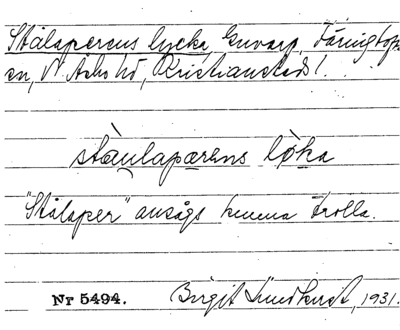 Stålaperens lycka, Envarp, Färingtofta
sn, N. Åsbo hd, Kristianstads l.
stàulapærens lỳka
"Stålaper" ansågs kunna trolla.
Nr 5494. Birgit Lundkvist, 1931.